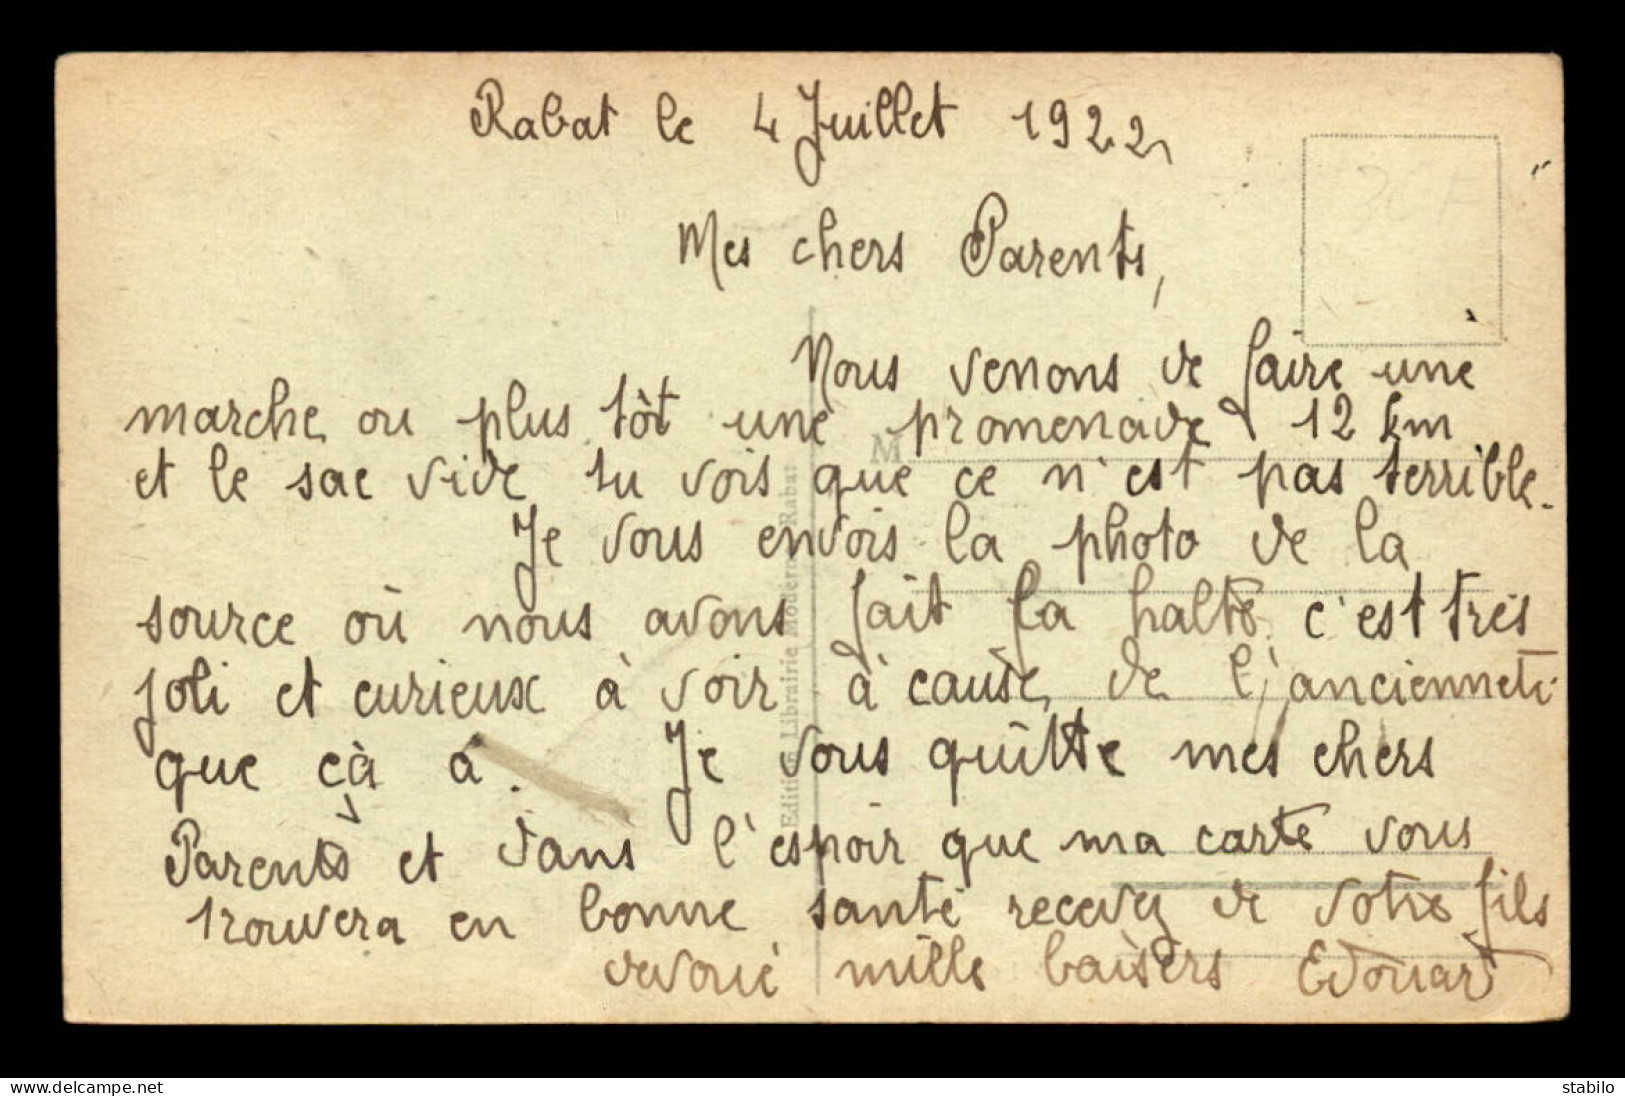 Rabat le 4 Juillet 1922
30 F
Mes chers Parents,
Nous venons de faire une
marche ou plus tôt une promenade 12 km
et le sac vide tu vois que ce n'est pas terrible.
Je vous envois la photo de la
source où nous avons fait la halte c'est très
joli et curieux à voir à cause de l'ancienneté
que çà a. Je vous quitte mes chers
Parents et dans l'espoir que ma carte vous
trouvera en bonne santé recevez de votre fils
devoué mille baisers Edouard
M
Edition Librairie Moderne Rabat
www.delcampe.net
stabilo